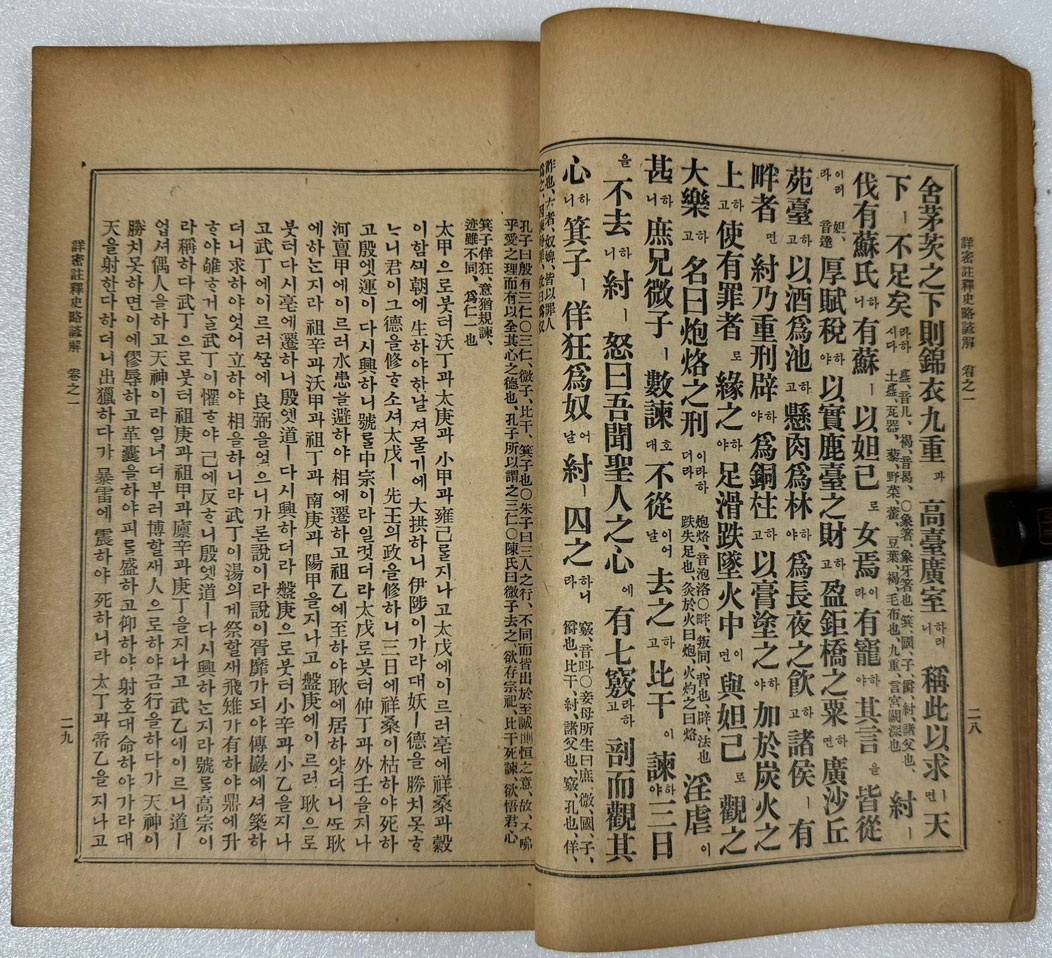 詳密註釋史略諺解 卷之一 二八
舍茅茨之下則錦衣九重과 高臺廣室하려니 稱此以求면 天
下ㅣ 不足矣라하시다 簋、音几、褐、音曷、○象箸、象牙箸也、箕、國、子、爵、紂、諸父也、土簋、瓦器、藜、野菜、藿、豆葉、褐、毛布也、九重、言宮闕深也、 紂ㅣ
伐有蘇氏하니 有蘇ㅣ 以妲己로 女焉라 有寵야 其言을 皆從
이러라 妲、音達、 厚賦稅하야 以實鹿臺之財하고 盈鉅橋之粟하며 廣沙丘
苑臺하고 以酒爲池하고 懸肉爲林하야 爲長夜之飮하고 諸侯ㅣ 有
畔者면 紂乃重刑辟하야 爲銅柱하고 以膏塗之하야 加於炭火之
上하고 使有罪者로 緣之하야 足滑跌墜火中이면 與妲己로 觀之
大樂하고 名曰炮烙之刑이라하더라 炮烙、音泡洛○畔、叛同、背也、辟、法也、跌失足也、灸於火曰炮、火灼之曰烙 淫虐이
甚하니 庶兄微子ㅣ 數諫호대 不從이어날 去之하고 比干이 諫三日하야
을 不去하니 紂ㅣ 怒曰吾聞聖人之心에 有七竅라하고 剖而觀其
心하니 箕子ㅣ 佯狂爲奴어날 紂ㅣ 囚之하니라 竅、音○妾母所生曰庶、微、國、子、爵也、比干、紂諸父也、竅、孔也、佯、
詐也、古者、奴婢、皆以罪人
孔子曰殷有三仁○三仁、微子、比干、箕子也○朱子曰三人之行、不同而皆出於至誠惻怛之意、故、不咈
乎愛之理而有以全其心之德也、孔子所以謂之三仁○陳氏曰微子去之、欲存宗祀、比干死諫、欲悟君心
箕子佯狂、意猶規諫、
迹雖不同、爲仁一也
太甲으로붓터沃丁과太庚과 小甲과雍己를지나고太戊에이르러亳에祥桑과穀
이함의朝에 生하야한날 져물기에 大拱하니 伊陟이가라대妖ㅣ德을勝치못ᄒ
ᄂ니君이그德을修ᄒ소셔太戊ㅣ先王의政을修하니三日에祥桑이枯하야死하
고殷엣運이다시興하니號를中宗이라일컷더라太戊로붓터仲丁과外壬을지나
河亶甲에이르러水患을避하야 相에遷하고祖乙에至하야耿에居하얏더니또耿
에하눈지라 祖辛과沃甲과祖丁과 南庚과 陽甲을지나고盤庚에이르러 耿으로
붓터다시亳에遷하니殷엣道ㅣ다시興하더라盤庚으로붓터小辛과小乙을지나
고武丁에이르러꿈에良弼을엇으니가론說이라說이胥靡가되야傅巖에셔築하
더니求하야엇어立하야 相을하니라武丁이湯의게 祭할새飛雉가有하야鼎에升
ᄒ야雊ᄒ거ᄂᆞᆯ武丁이懼ᄒ야 己에反ᄒ니殷엣道ㅣ다시興하눈지라號를高宗이
라稱하다武丁으로붓터祖庚과祖甲과廩辛과庚丁을지나고武乙에이르니道ㅣ
업셔偶人을하고天神이라일너더부러博할새人으로하야금行을하다가天神이
勝치못하면이에僇辱하고革囊을하야피를盛하고仰하야射호대命하야가라대
天을射한다하더니出獵하다가 暴雷에 震하야 死하니라 太丁과帝乙을지나고
詳密註釋史略諺解 卷之一 二九